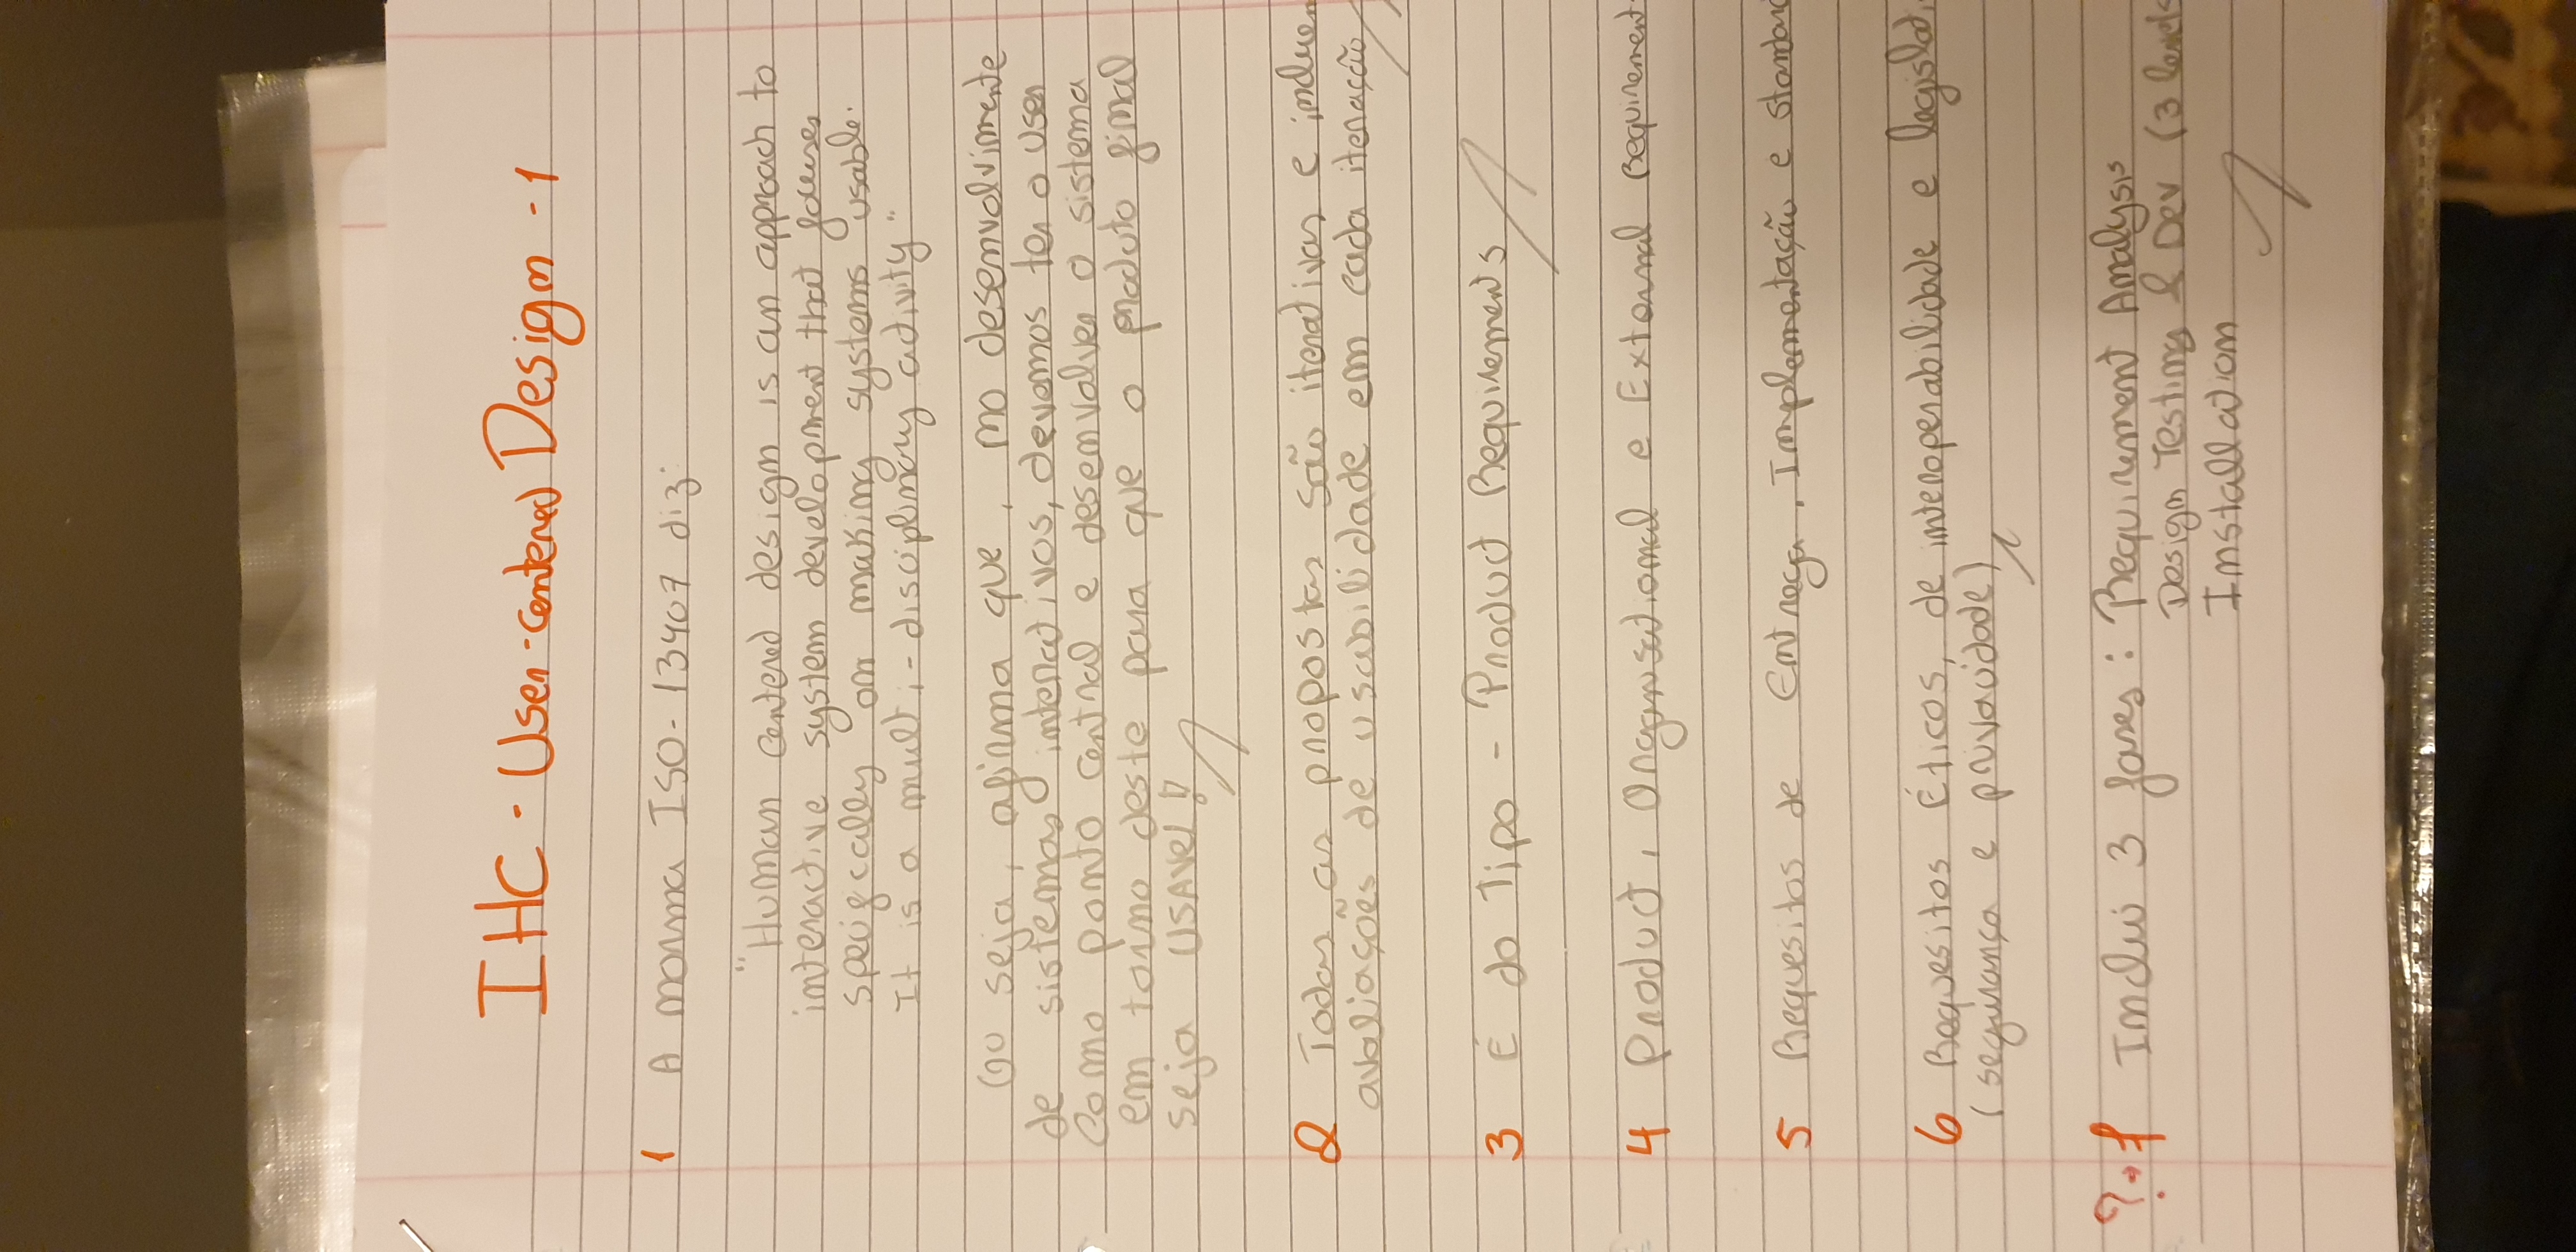 IHC - User-centered Design - 1
1 A norma ISO - 13407 diz:
"Human centered design is an approach to
interactive system development that focuses
specifically on making systems usable.
It is a multi-disciplinary activity"
Ou seja, afirma que, no desenvolvimente
de sistemas interativos, devemos ter o user
como ponto central e desenvolver o sistema
em torno deste para que o produto final
seja USAVEL!
2 Todas as propostas são iterativas e incluem
avaliações de usabilidade em cada iteração
3 É do Tipo - Product Requirements
4 Product, Organisational e External Requirement
5 Requesitos de Entrega, Implementação e standard
6 Requesitos Éticos, de interoperabilidade e legislati
(segurança e privacidade)
? → 7 Inclui 3 fases: Requirement Analysis
Design Testing & Dev (3 levels
Installation